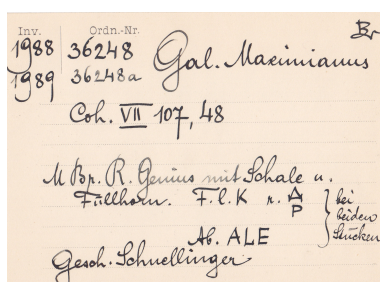 Br
Inv. Ordn.-Nr.
1988 36248 Gal. Maximianus
1989 36248a
Coh. VII 107, 48
M Br. R. Genius mit Schale u.
Füllhorn. F. l. K r. Δ bei
P beiden
Ab. ALE Stücken
Gesch. Schnellinger